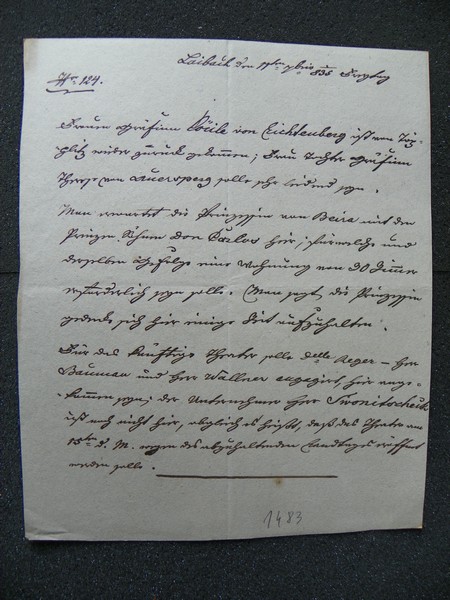 Laibach den 11ten 7bris 835 Freytag
Nro 124.
Frauen Gräfinn Cäcilie von Lichtenberg ist von Töp-
litz wieder zurück gekommen; Frau Tochter Gräfinn
Therese von Auersperg solle sehr leidend seyn.
Man erwartet die Prinzessin von Beira mit den
Prinzen Söhnen don Carlos hier; für welche und
derselben Gefolge eine Wohnung von 30 Zimer
erforderlich seyn solle. Man sagt, die Prinzessin
gedenke sich hier einige Zeit aufzuhalten.
Für das künftige Theater solle Delle Reger – Herr
Bauman und Herr Wallner engagirt, hier ange-
kommen seyn; der Unternehmer Herr
ist noch nicht hier, obgleich es heißt, daß das Theater am
15ten d. M. wegen des abzuhaltenden Landtages eröffnet
werden solle.
1483